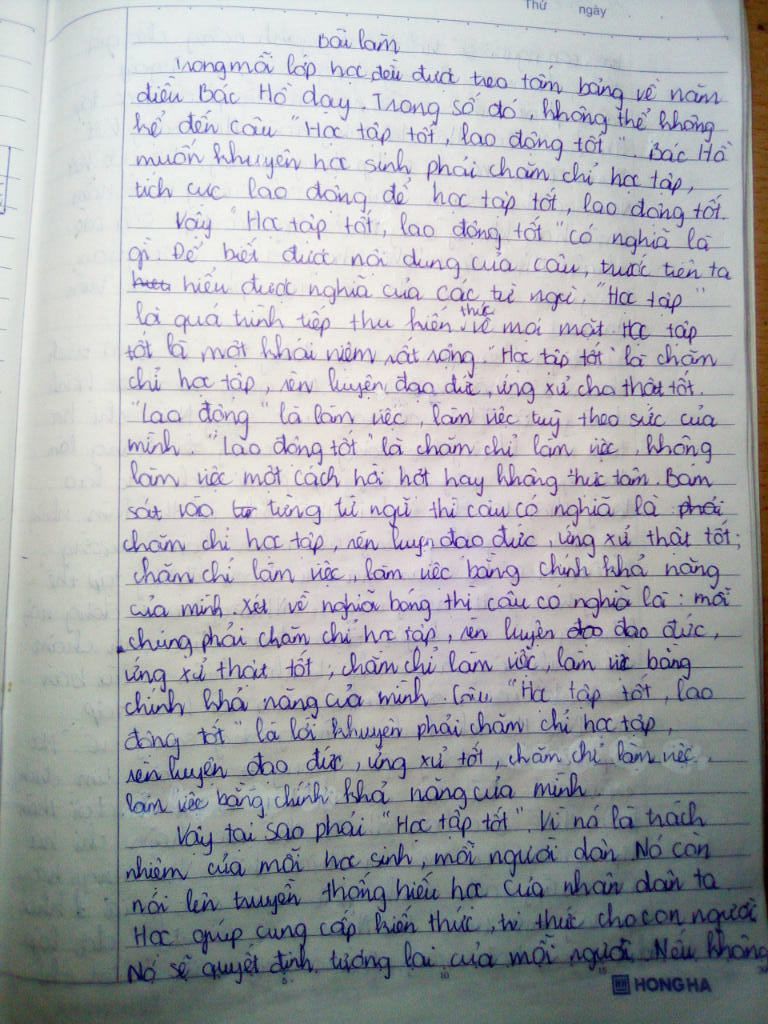 Thứ ngày
Bài làm
Trong mỗi lớp học đều được treo tấm bảng về năm
điều Bác Hồ dạy. Trong số đó, không thể không
kể đến câu "Học tập tốt, lao động tốt". Bác Hồ
muốn khuyên học sinh phải chăm chỉ học tập,
tích cực lao động để học tập tốt, lao động tốt.
Vậy "Học tập tốt, lao động tốt" có nghĩa là
gì. Để biết được nội dung của câu, trước tiên ta
hiểu được nghĩa của các từ ngữ. "Học tập"
là quá trình tiếp thu kiến thức về mọi mặt. Học tập
tốt là một khái niệm rất rộng. "Học tập tốt" là chăm
chỉ học tập, rèn luyện đạo đức, ứng xử cho thật tốt.
"Lao động" là làm việc, làm việc tuỳ theo sức của
mình. "Lao động tốt" là chăm chỉ làm việc, không
làm việc một cách hời hợt hay không thực tâm. Bám
sát vào từng từ ngữ thì câu có nghĩa là phải
chăm chỉ học tập, rèn luyện đạo đức, ứng xử thật tốt;
chăm chỉ làm việc, làm việc bằng chính khả năng
của mình. Xét về nghĩa bóng thì câu có nghĩa là: mỗi
chúng phải chăm chỉ học tập, rèn luyện đạo đức,
ứng xử thật tốt; chăm chỉ làm việc, làm việc bằng
chính khả năng của mình. Câu "Học tập tốt, lao
động tốt" là lời khuyên phải chăm chỉ học tập,
rèn luyện đạo đức, ứng xử tốt, chăm chỉ làm việc,
làm việc bằng chính khả năng của mình.
Vậy tại sao phải "Học tập tốt". Vì nó là trách
nhiệm của mỗi học sinh, mỗi người dân. Nó còn
nói lên truyền thống hiếu học của nhân dân ta.
Học giúp cung cấp kiến thức, tri thức cho con người
Nó sẽ quyết định tương lai của mỗi người. Nếu không
HONG HA